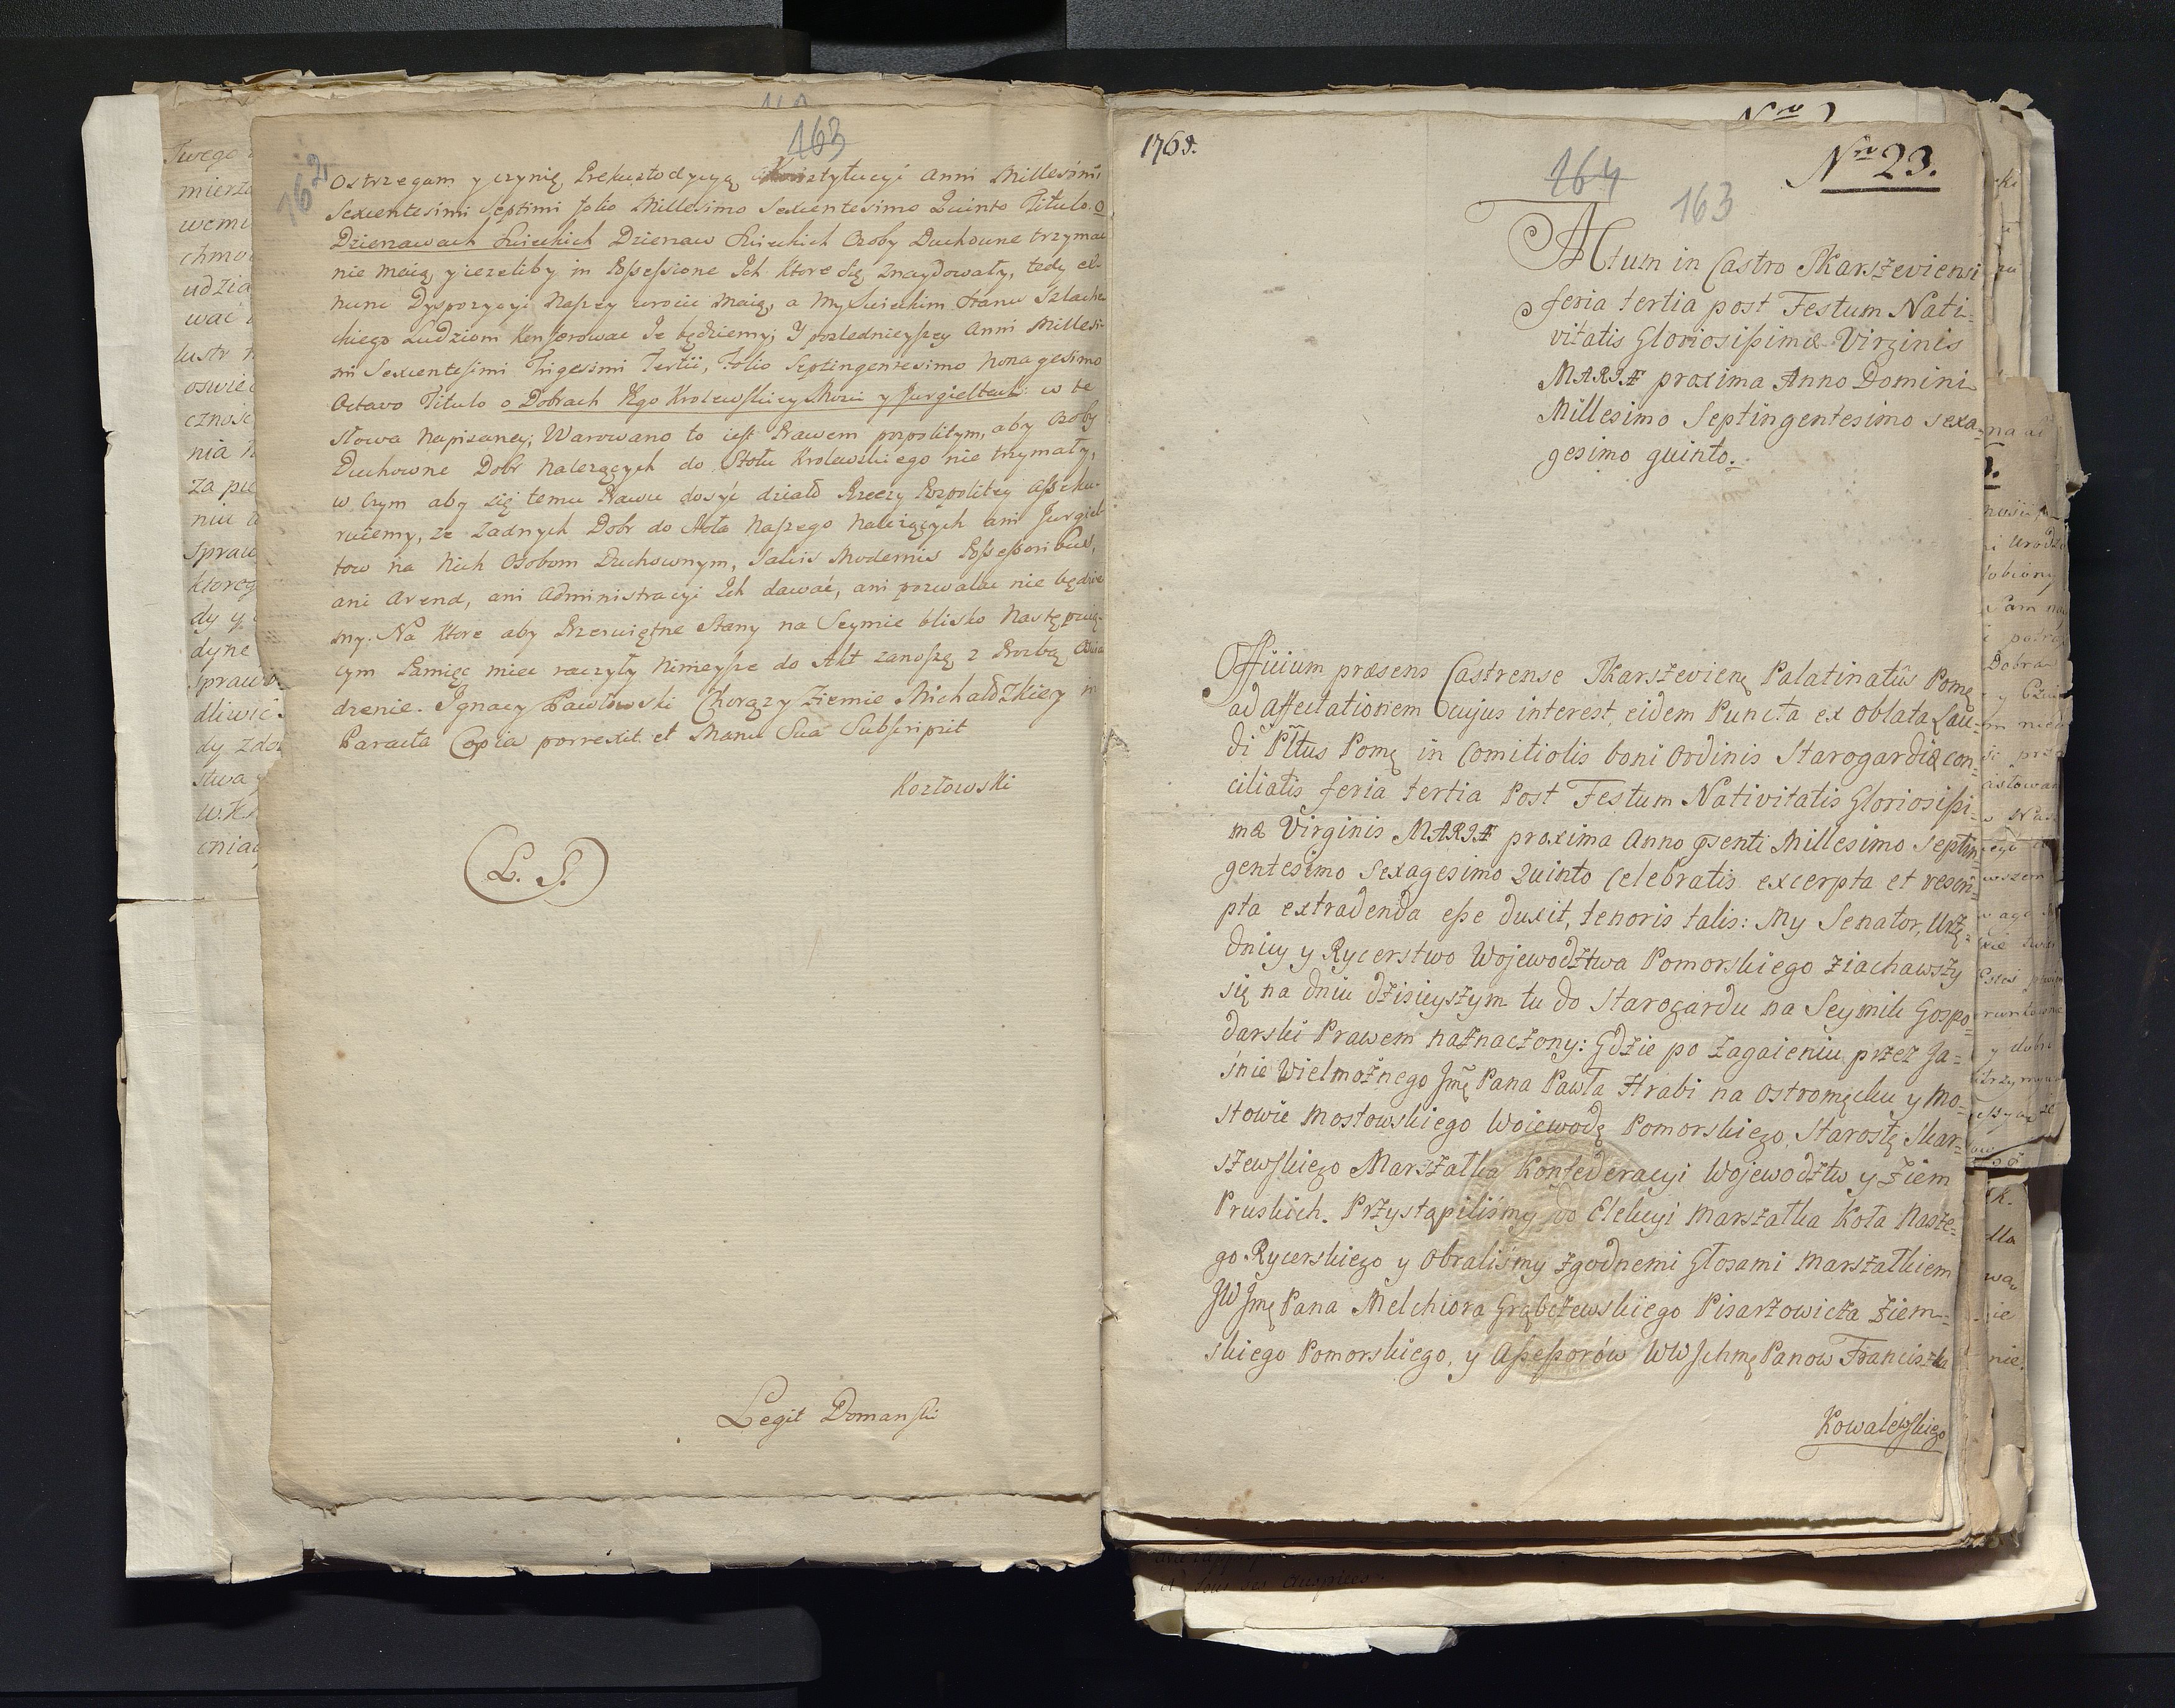 163
162
ostrzegam y czynię Prekustodycyą Konstytucyi Anni Millesimi
Sexcentesimi Septimi folio Millesimo Sexcentesimo Quinto Titulo. O
Dzierzawach Swieckich Dzierzaw Swieckich Osoby Duchowne trzymac
nie maią, y iezeliby in Possessione Ich ktore się znaydowały, tedy ex
nunc Dyspozycyi Naszey wrocic maią, a My Swieckim Stanu Szlache
ckiego Ludziom konferowac Je będziemy; Y poslednieyszey Anni Millesi-
mi Sexcentesimi Trigesimi Tertii, Folio Septingentesimo Nonagesimo
Octavo Titulo o Dobrach Jego Krolewskiey Mosci y Jurgieltach: w te
słowa Napisaney; Warowano to iest Prawem pospolitym, aby Osoby
Duchowne Dobr Nalezących do Stołu Krolewskiego nie trzymały,
w czym aby się temu Prawu dosyć działo Rzeczy Pospolitey assecu-
ruiemy, ze zadnych Dobr do stołu Naszego Nalezących ani Jurgiel
tow na Nich Osobom Duchownym, Salvis Modernis Possessoribus,
ani Arend, ani Administracyi Ich dawać, ani pozwalac nie będzie
my. Na ktore aby Przeswiętne Stany na Seymie blisko Następuią-
cym Pamięc miec raczyły Ninieysze do Akt zanoszę z Prozbą
dzenie. Ignacy Pawłowski Chorązy Ziemie Michałdzkiey
Paracta Copia porrexit et Manu Sua Subscripsit
Kozłowski
(L. S.)
Legit Domanski
1765.
Nro 23.
164
163
Actum in Castro Skarszeviensi
feria tertia post Festum Nati-
vitatis Gloriosissimæ Virginis
MARIÆ proxima Anno Domini
Millesimo Septingentesimo sexa-
gesimo quinto.
Officium præsens Castrense Skarszevien Palatinatûs Pom
ad affectationem cujus interest, eidem Puncta ex Oblata Lau-
di Pltus Pom in Comitiolis boni Ordinis Starogardiæ con-
ciliatis feria tertia Post Festum Nativitatis Gloriosissi-
mæ Virginis MARIÆ proxima Anno psenti Millesimo Septin-
gentesimo Sexagesimo Quinto celebratis excerpta et rescri-
pta extradenda esse duxit, tenoris talis: My Senator, Urzę-
dnicy y Rycerstwo Wojewodztwa Pomorskiego ziachawszy
się na dniu dzisieyszym tu do Starogardu na Seymik Gospo-
darski Prawem naznaczony: Gdzie po zagaieniu przez Ja-
śnie Wielmożnego Jmę Pana Pawła Hrabi na Ostromęcku y Mo-
stowie Mostowskiego Woiewodę Pomorskiego, Starostę Skar-
szewskiego Marszałka Konfederacyi Wojewodztw y Ziem
Pruskich. Przystąpiliśmy do Elekcyi Marszałka Koła Nasze-
go Rycerskiego y Obraliśmy zgodnemi Głosami Marszałkiem
JW Jmę Pana Melchiora Grąbczewskiego Pisarzowicza Ziem-
skiego Pomorskiego, y Assessorów WW Jchmę Panow Franciszka
Kowalewskiego